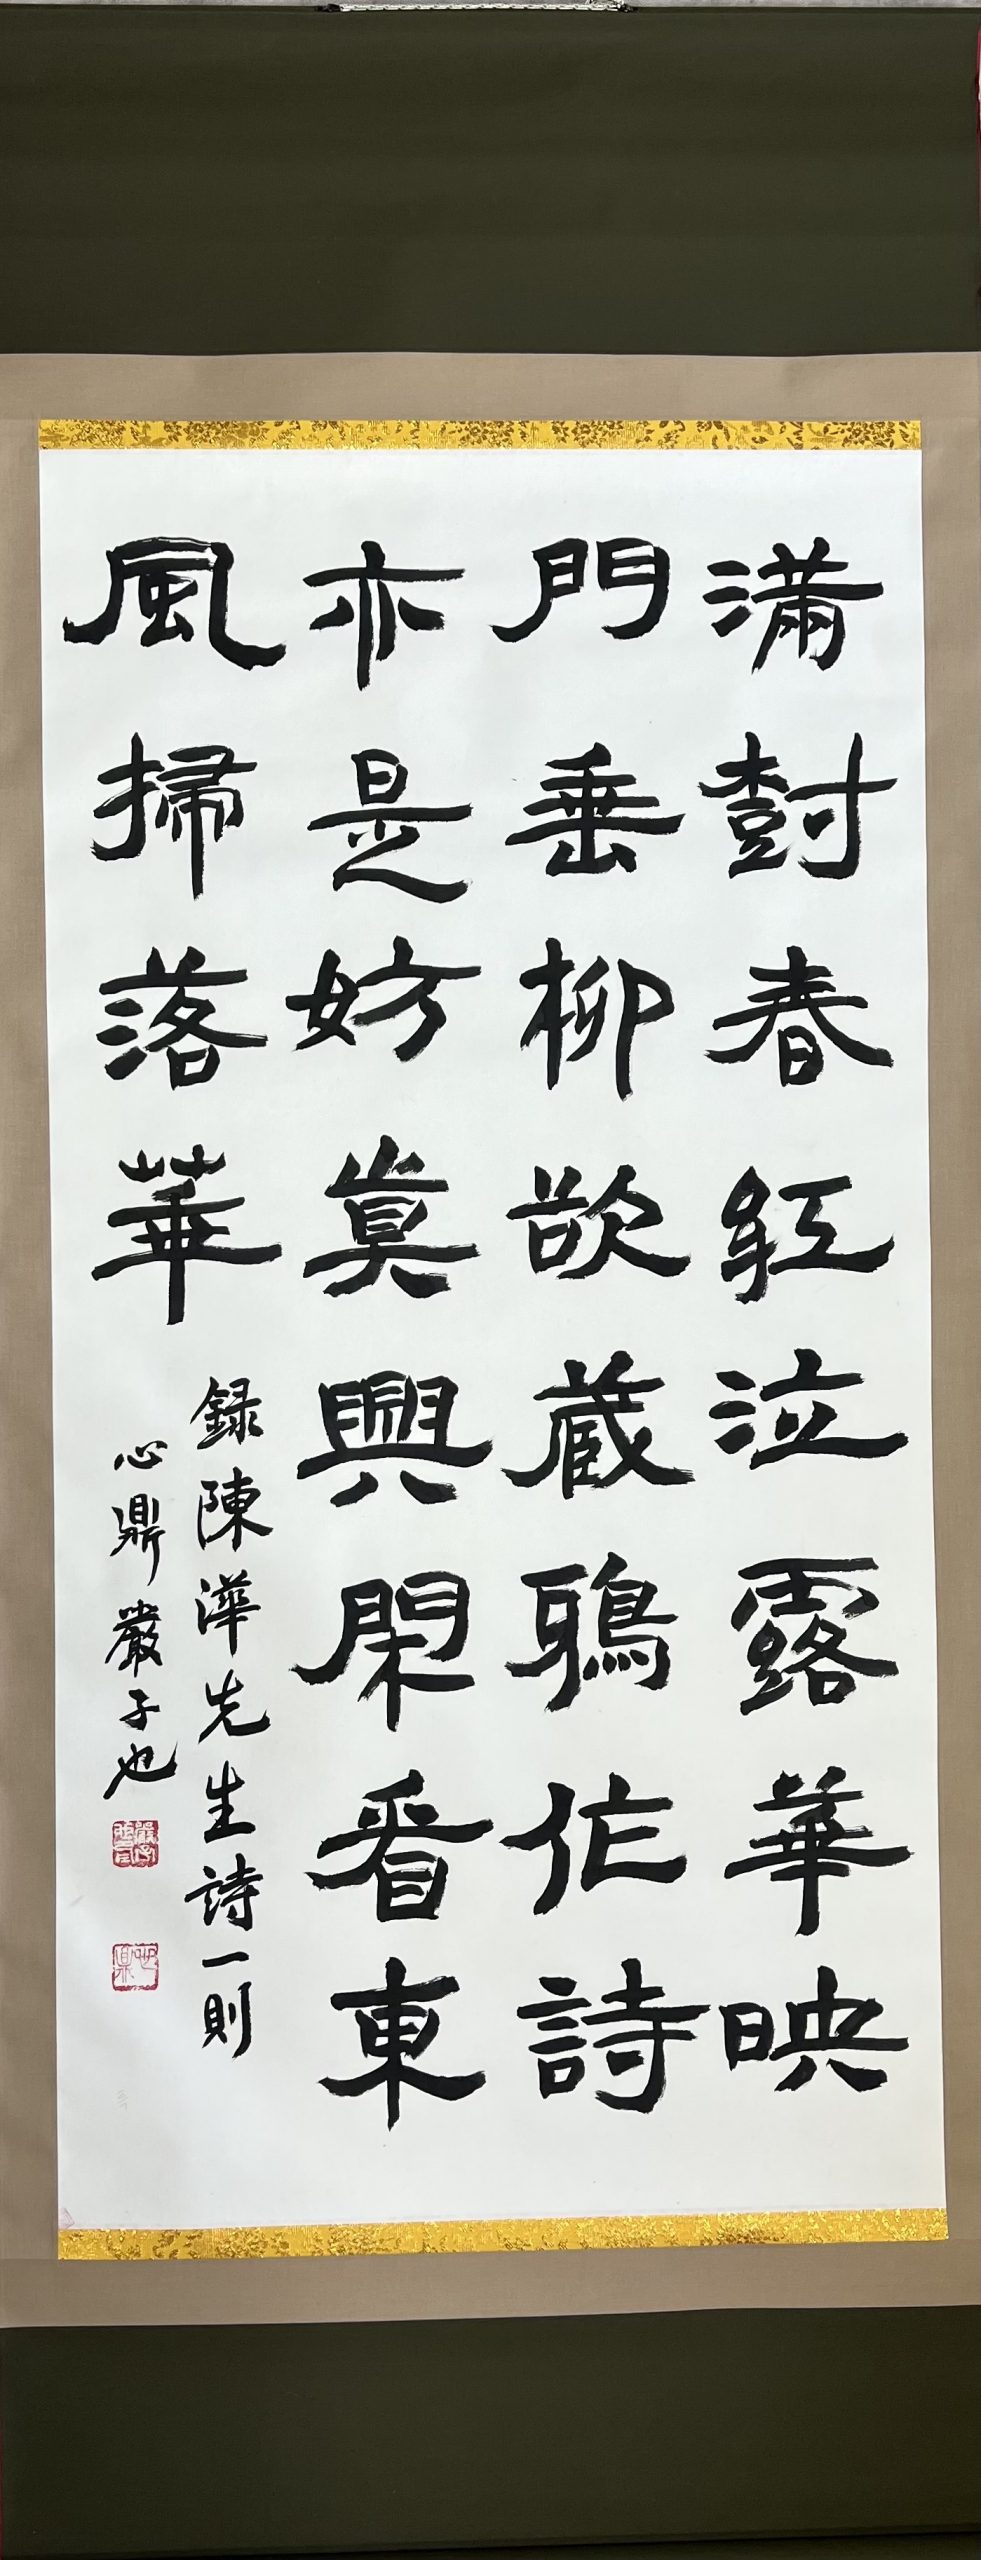 滿樹春紅泣露華映
門垂柳欲藏鴉忙詩
亦是妨眞興閑看東
風掃落華
録陳澕先生詩一則
心鼎嚴子也